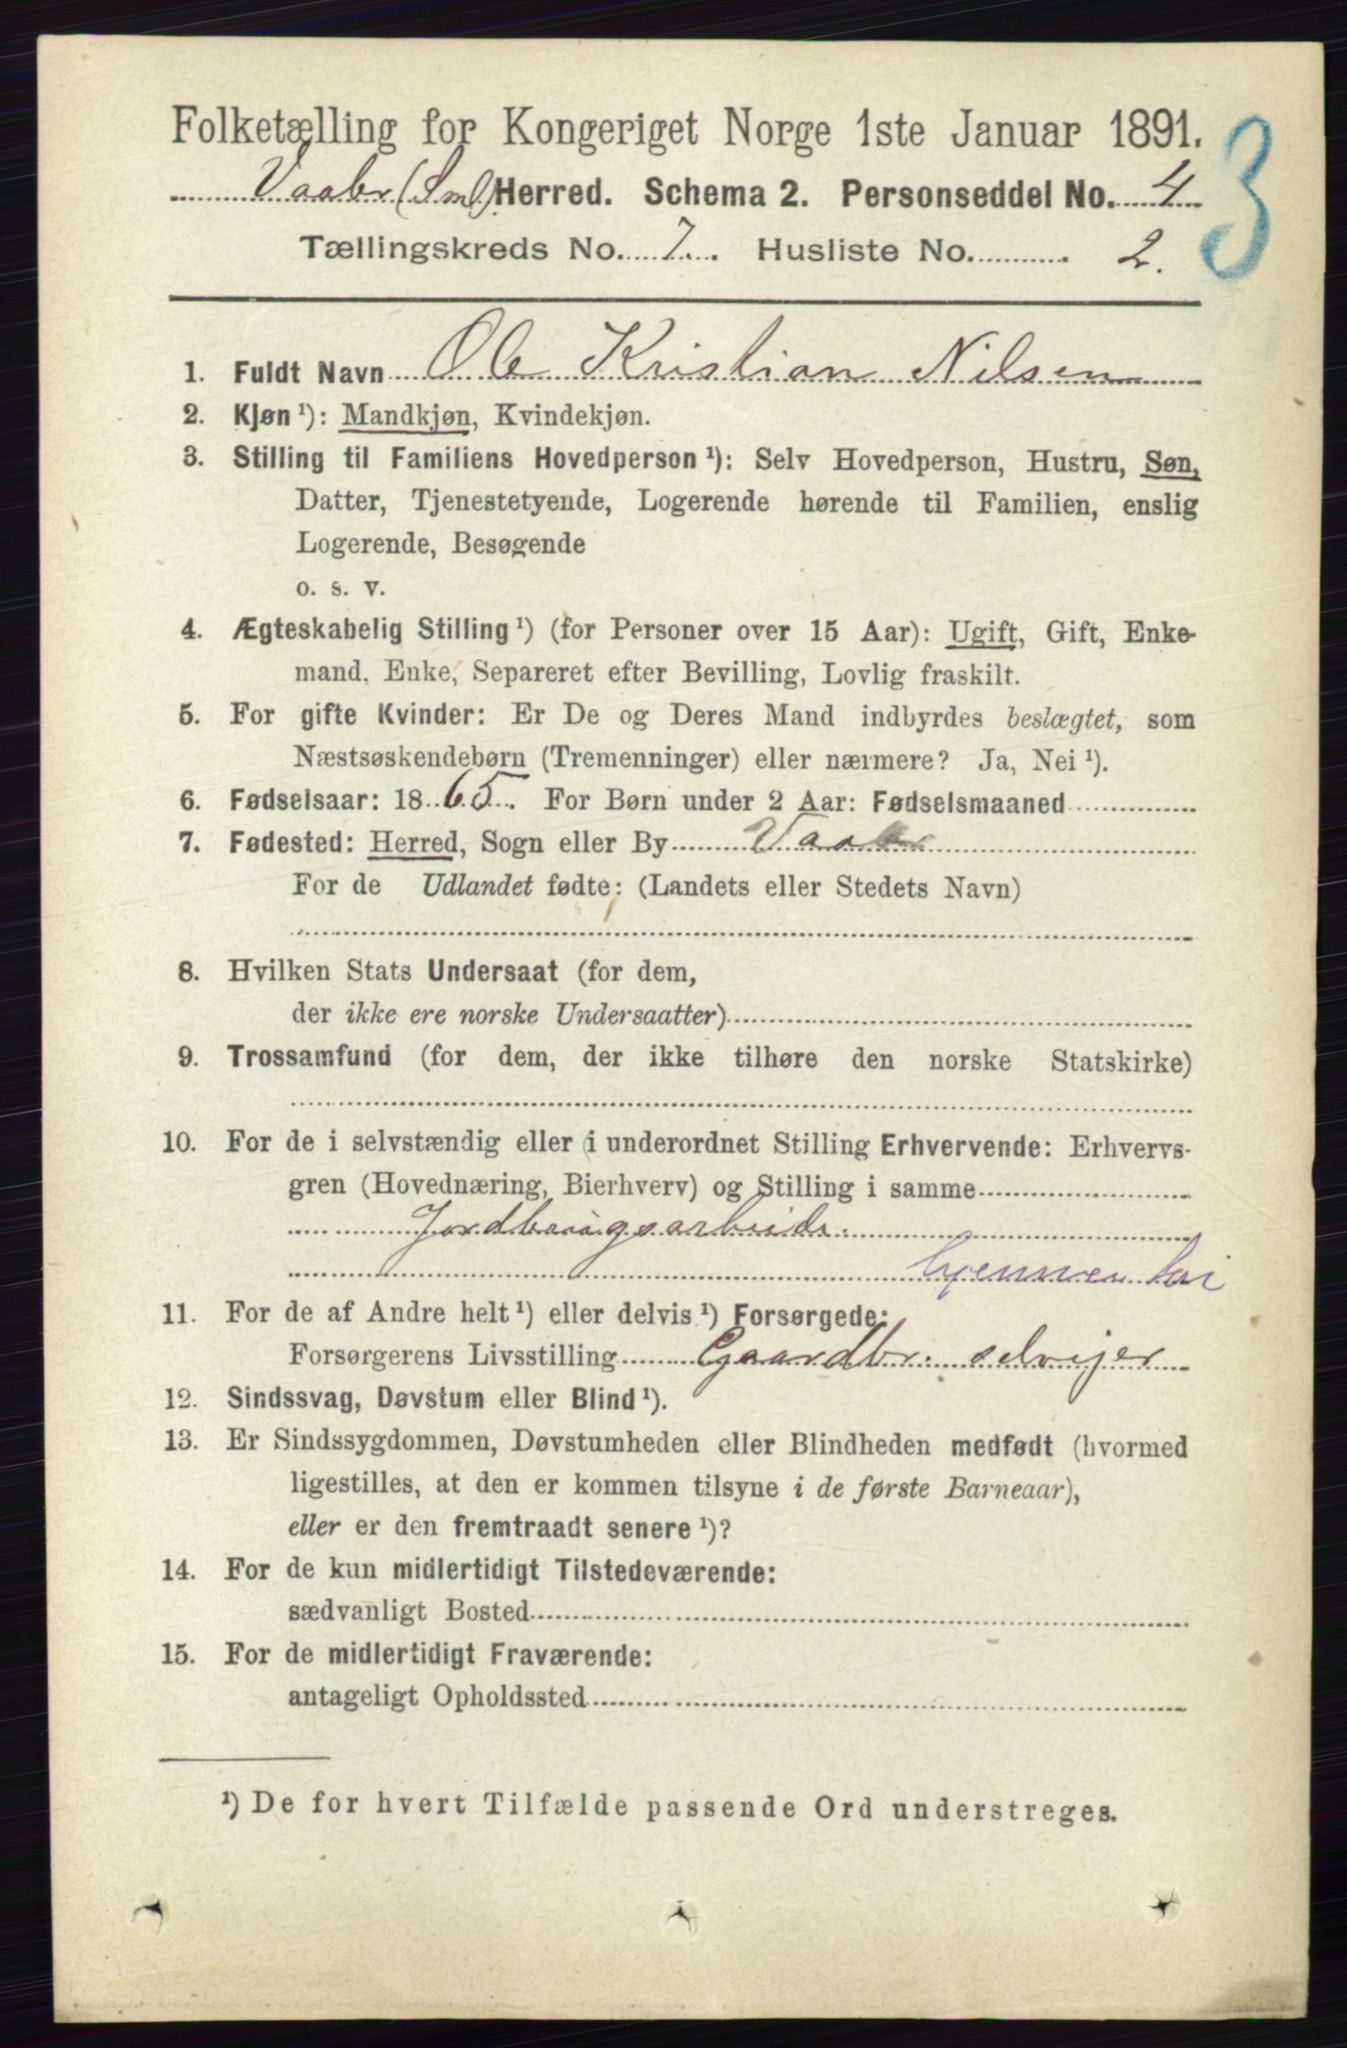 Folketælling for Kongeriget Norge 1ste Januar 1891.
3
Vaabr (Sml) Herred. Schema 2. Personseddel No. 4
Tællingskreds No. 7. Husliste No. 2.
1. Fuldt Navn Ole Kristian Nilsen
2. Kjøn ¹): Mandkjøn, Kvindekjøn.
3. Stilling til Familiens Hovedperson ¹): Selv Hovedperson, Hustru, Søn,
Datter, Tjenestetyende, Logerende hørende til Familien, enslig
Logerende, Besøgende
o. s. v.
4. Ægteskabelig Stilling ¹) (for Personer over 15 Aar): Ugift, Gift, Enke-
mand, Enke, Separeret efter Bevilling, Lovlig fraskilt.
5. For gifte Kvinder: Er De og Deres Mand indbyrdes beslægtet, som
Næstsøskendebørn (Tremenninger) eller nærmere? Ja, Nei ¹).
6. Fødselsaar: 1865. For Børn under 2 Aar: Fødselsmaaned
7. Fødested: Herred, Sogn eller By Vaabr
For de Udlandet fødte: (Landets eller Stedets Navn)
8. Hvilken Stats Undersaat (for dem,
der ikke ere norske Undersaatter)
9. Trossamfund (for dem, der ikke tilhøre den norske Statskirke)
10. For de i selvstændig eller i underordnet Stilling Erhvervende: Erhvervs-
gren (Hovednæring, Bierhverv) og Stilling i samme
Jordbrugsarbeide.
hjemmev.
11. For de af Andre helt ¹) eller delvis ¹) Forsørgede:
Forsørgerens Livsstilling Gaardbr. selvejer
12. Sindssvag, Døvstum eller Blind ¹).
13. Er Sindssygdommen, Døvstumheden eller Blindheden medfødt (hvormed
ligestilles, at den er kommen tilsyne i de første Barneaar),
eller er den fremtraadt senere ¹)?
14. For de kun midlertidigt Tilstedeværende:
sædvanligt Bosted
15. For de midlertidigt Fraværende:
antageligt Opholdssted
¹) De for hvert Tilfælde passende Ord understreges.